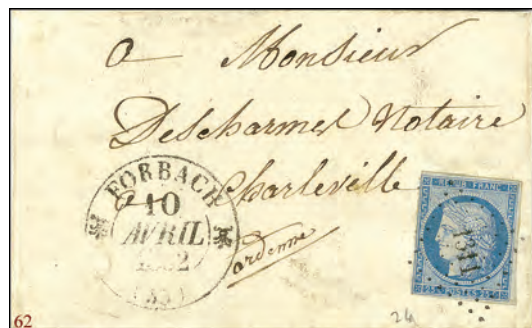 a Monsieur
Descharmes Notaire
a Charleville
ardenne
FORBACH
10
AVRIL
REPUB. FRANC.
1311
25 POSTES 25
24
62